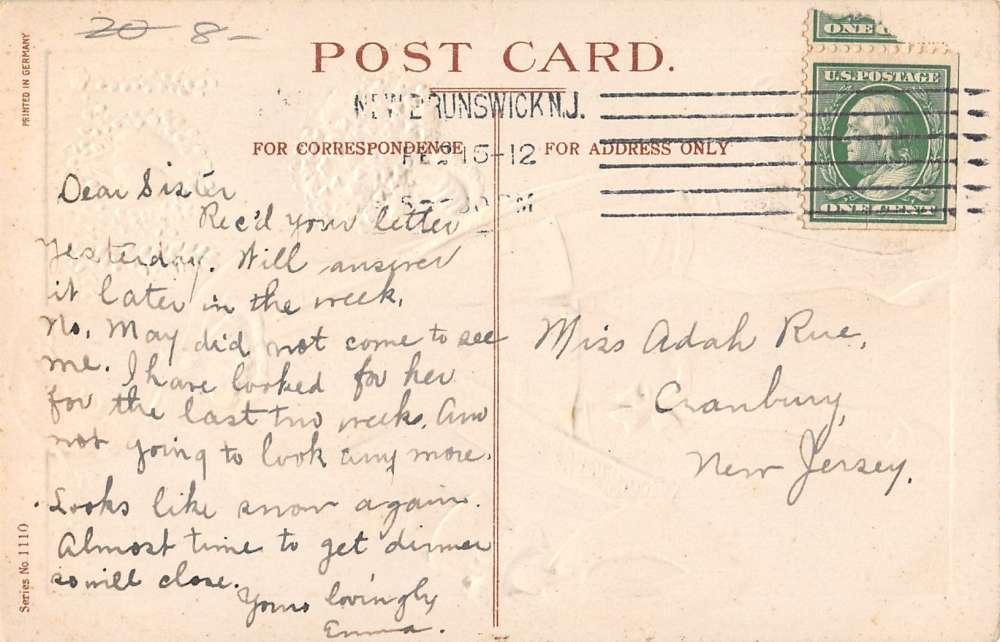 20 8-
POST CARD.
ONE
U.S. POSTAGE
ONE CENT
NEW BRUNSWICK N.J.
FEB 15-12
PM
FOR CORRESPONDENCE
FOR ADDRESS ONLY
PRINTED IN GERMANY
Series No 1110
Dear Sister
Rec'd your letter
yesterday. Will answer
it later in the week.
No, May did not come to see
me. I have looked for her
for the last two weeks. Am
not going to look any more.
Looks like snow again.
Almost time to get dinner
so will close.
Yours lovingly
Emma.
Miss Adah Rue,
Cranbury,
New Jersey.